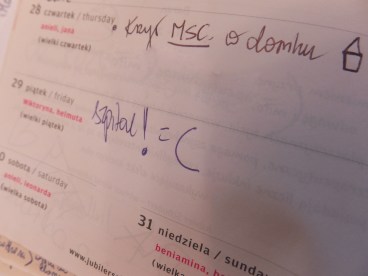 28 czwartek / thursday
anieli, jana
(wielki czwartek)
• Krzyś MSC. o domku
29 piątek / friday
wiktoryna, helmuta
(wielki piątek)
szpital! =(
sobota / saturday
anieli, leonarda
(wielka sobota)
31 niedziela / sunda
beniamina,
(wielka
www.jubilers